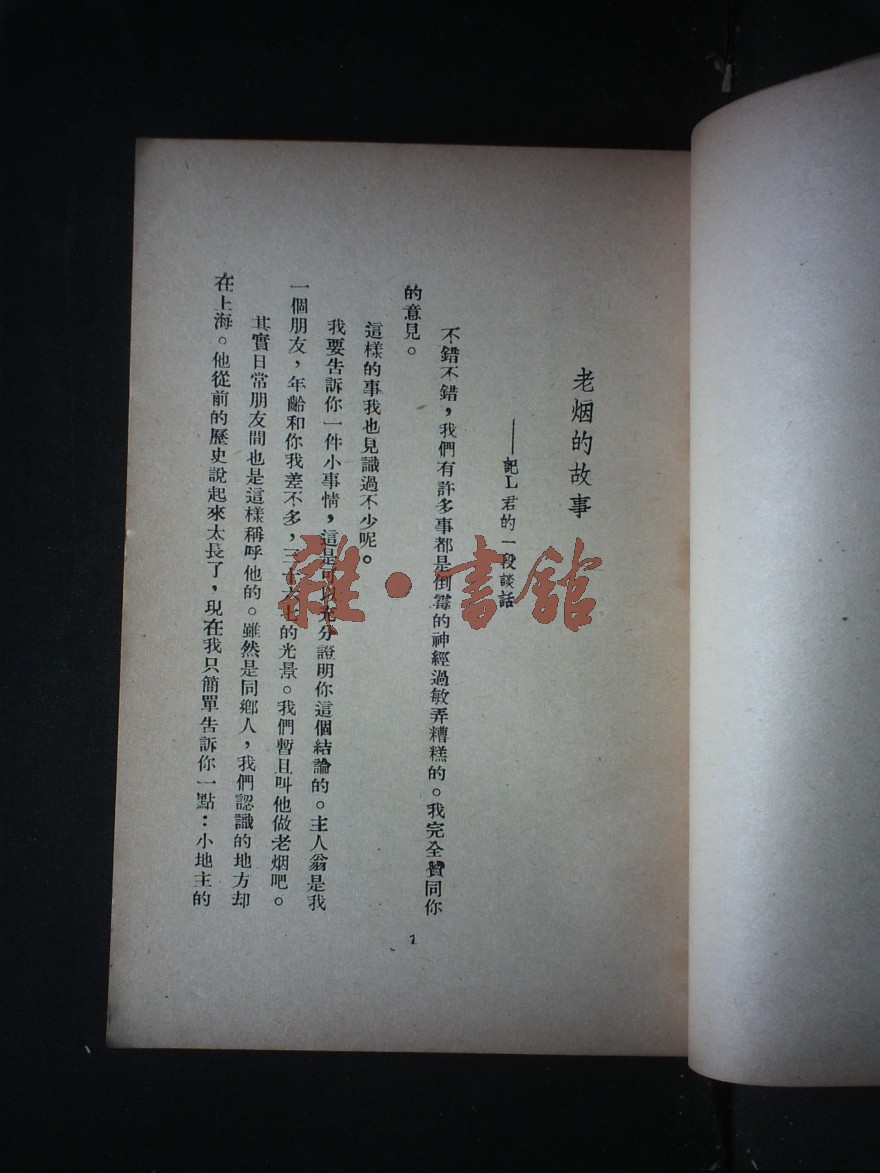 老烟的故事
——記L君的一段談話
不錯不錯，我們有許多事都是倒霉的神經過敏弄糟糕的。我完全贊同你
的意見。
這樣的事我也見識過不少呢。
我要告訴你一件小事情，這是可以充分證明你這個結論的。主人翁是我
一個朋友，年齡和你我差不多，三十六七的光景。我們暫且叫他做老烟吧。
其實日常朋友間也是這樣稱呼他的。雖然是同鄉人，我們認識的地方却
在上海。他從前的歷史說起來太長了，現在我只簡單告訴你一點：小地主的
1
雜·書館